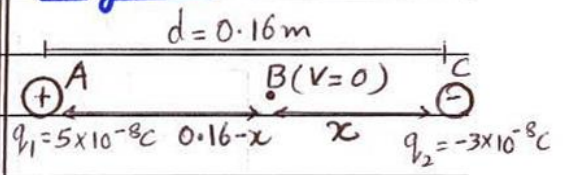 d = 0.16m
+ A B(V=0) C -
q₁=5×10⁻⁸C 0.16-x x q₂=-3×10⁻⁸C